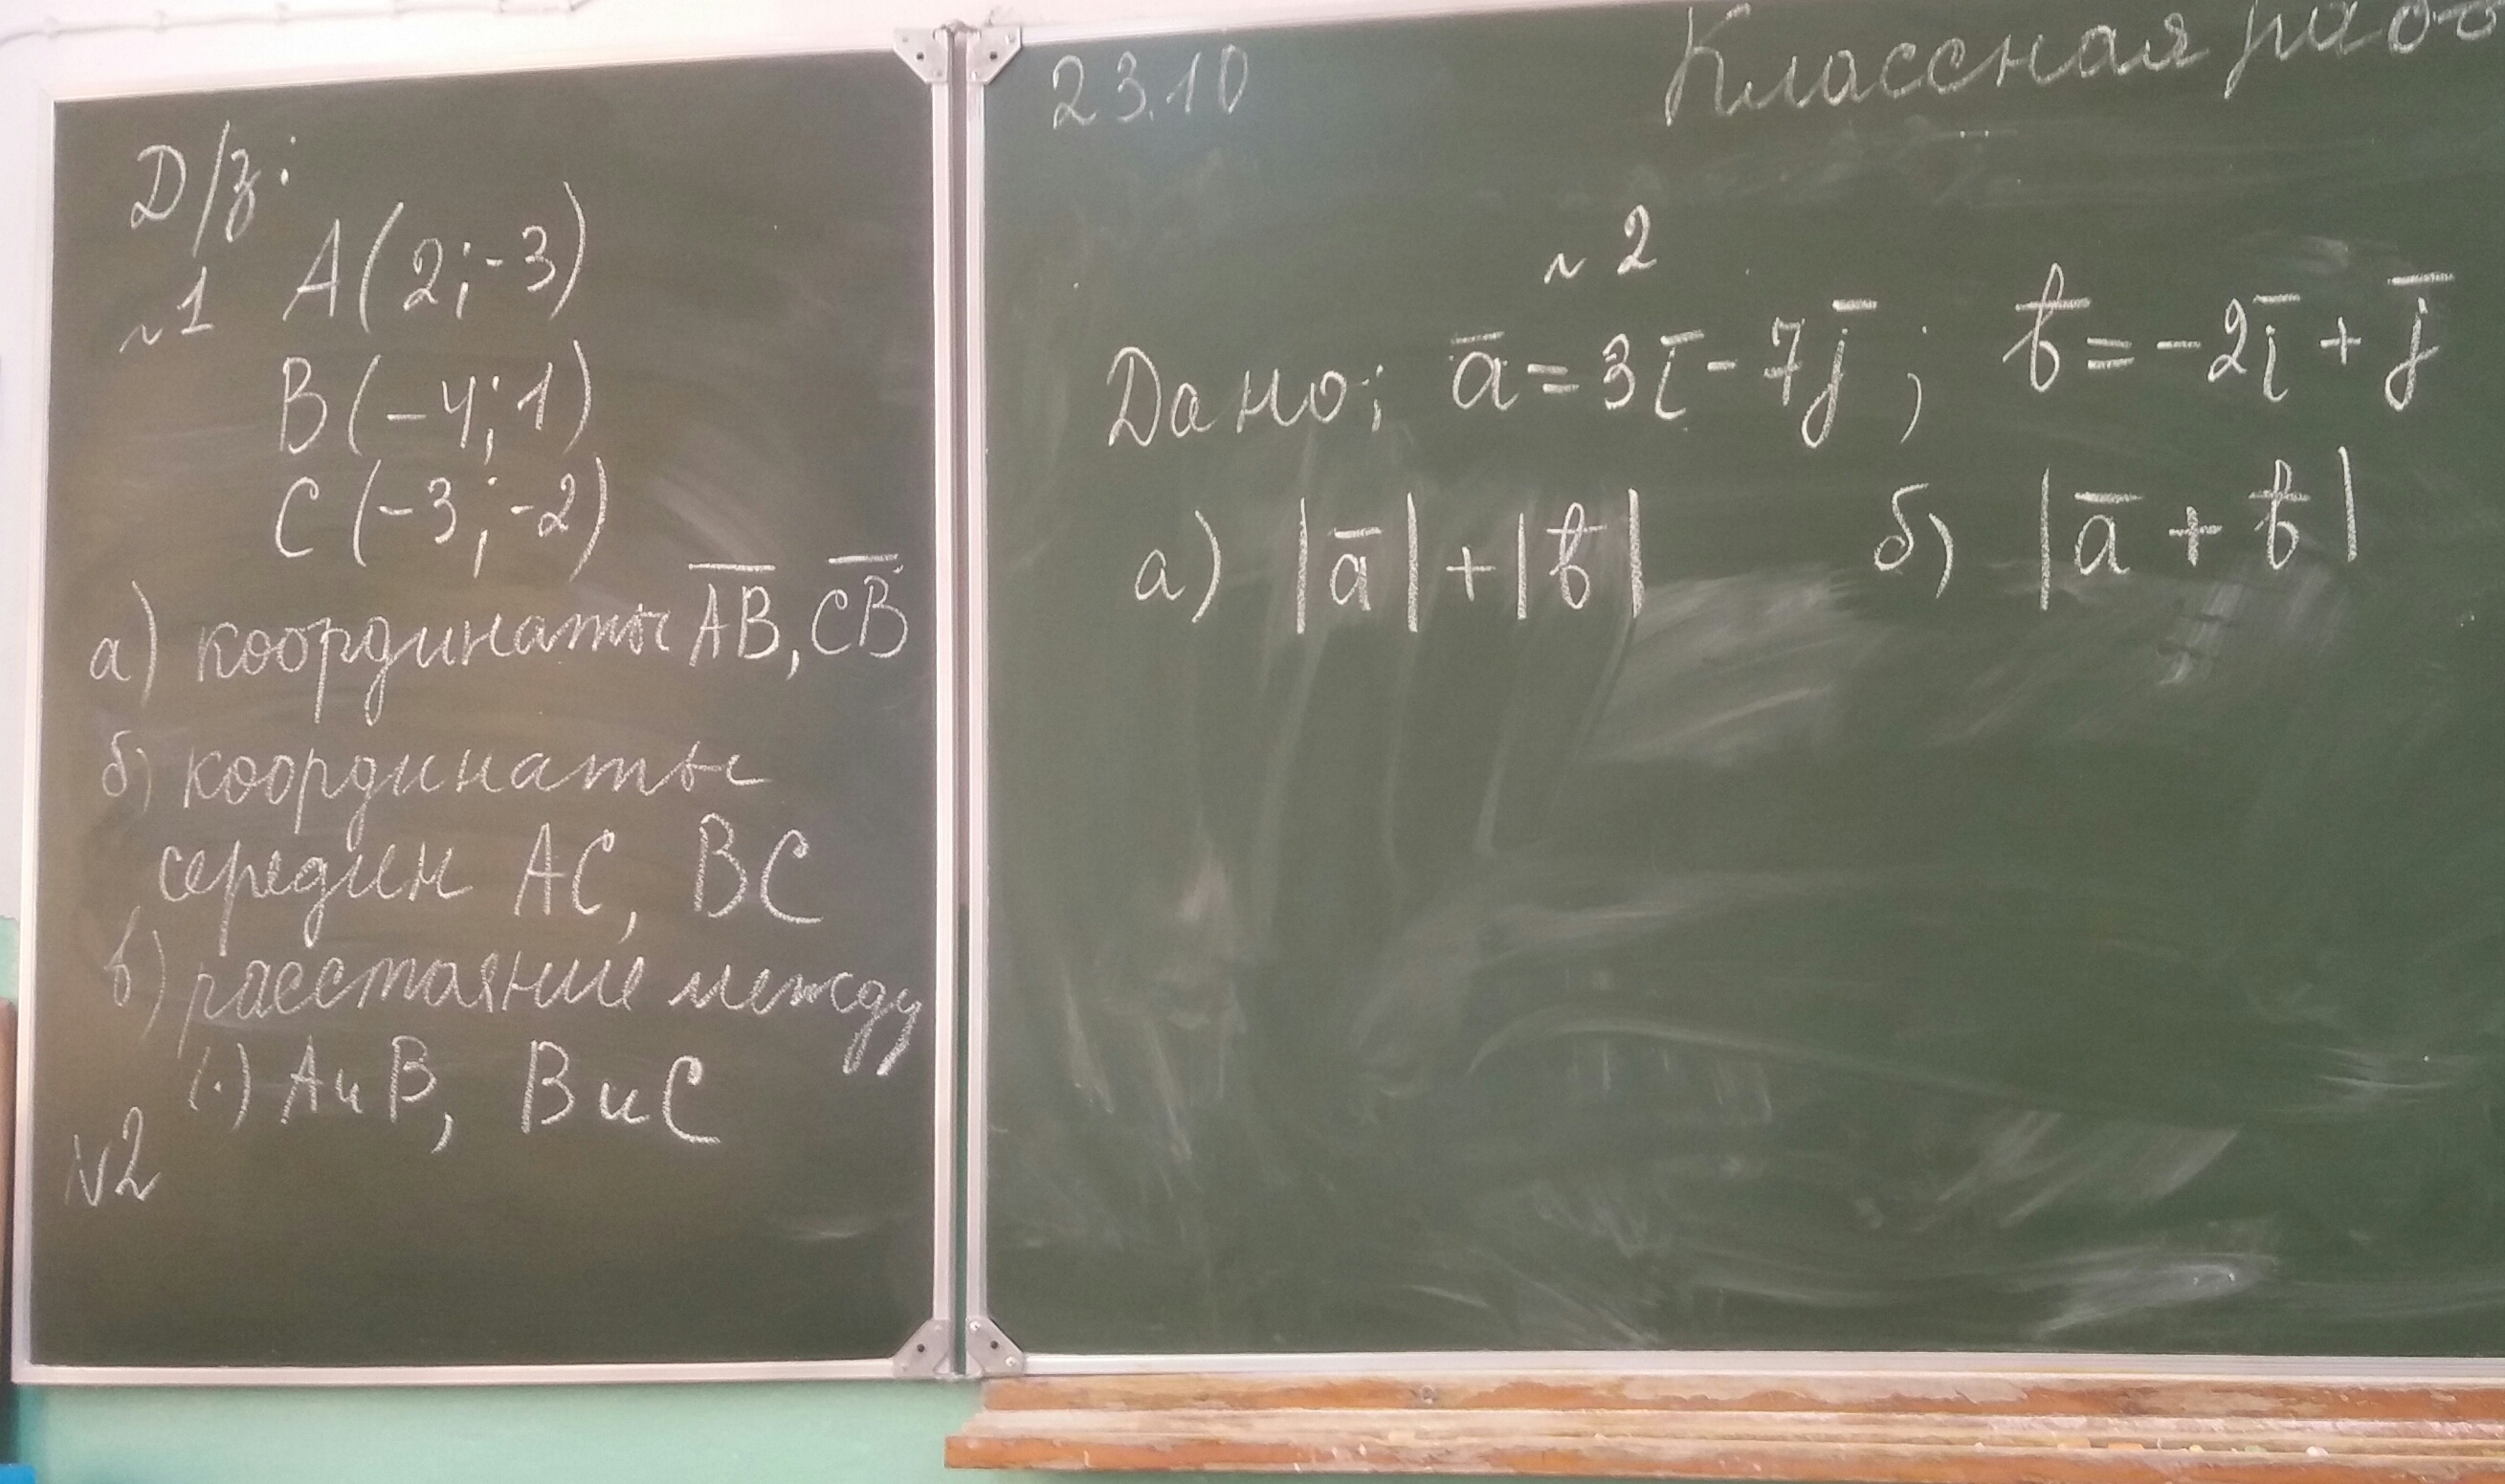 Д/з:
№1 A(2;-3)
B(-4;1)
C(-3;-2)
а) координаты A̅B̅, C̅B̅
б) координаты
середин AC, BC
в) расстояние между
(·) A и B, B и C
№2
23.10 Классная рабо
№2
Дано: a̅ = 3i̅ - 7j̅ ; b̅ = -2i̅ + j̅
а) |a̅|+|b̅| б) |a̅ + b̅|